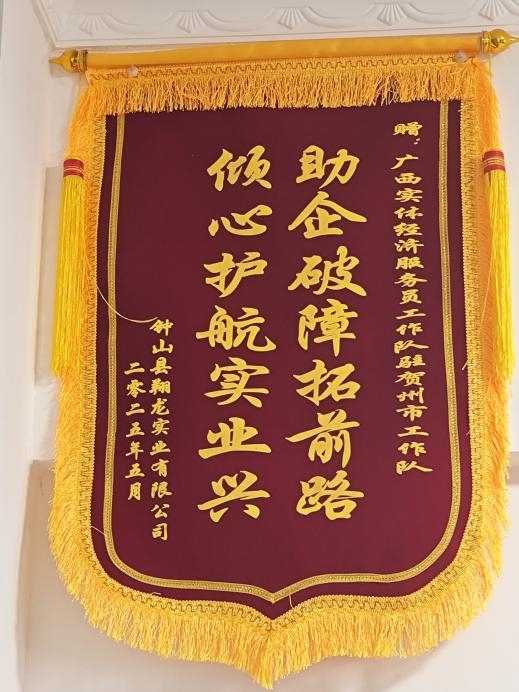 赠：广西实体经济服务员工作队驻贺州市工作队
助企破障拓前路
倾心护航实业兴
钟山县翔龙实业有限公司
二零二五年五月